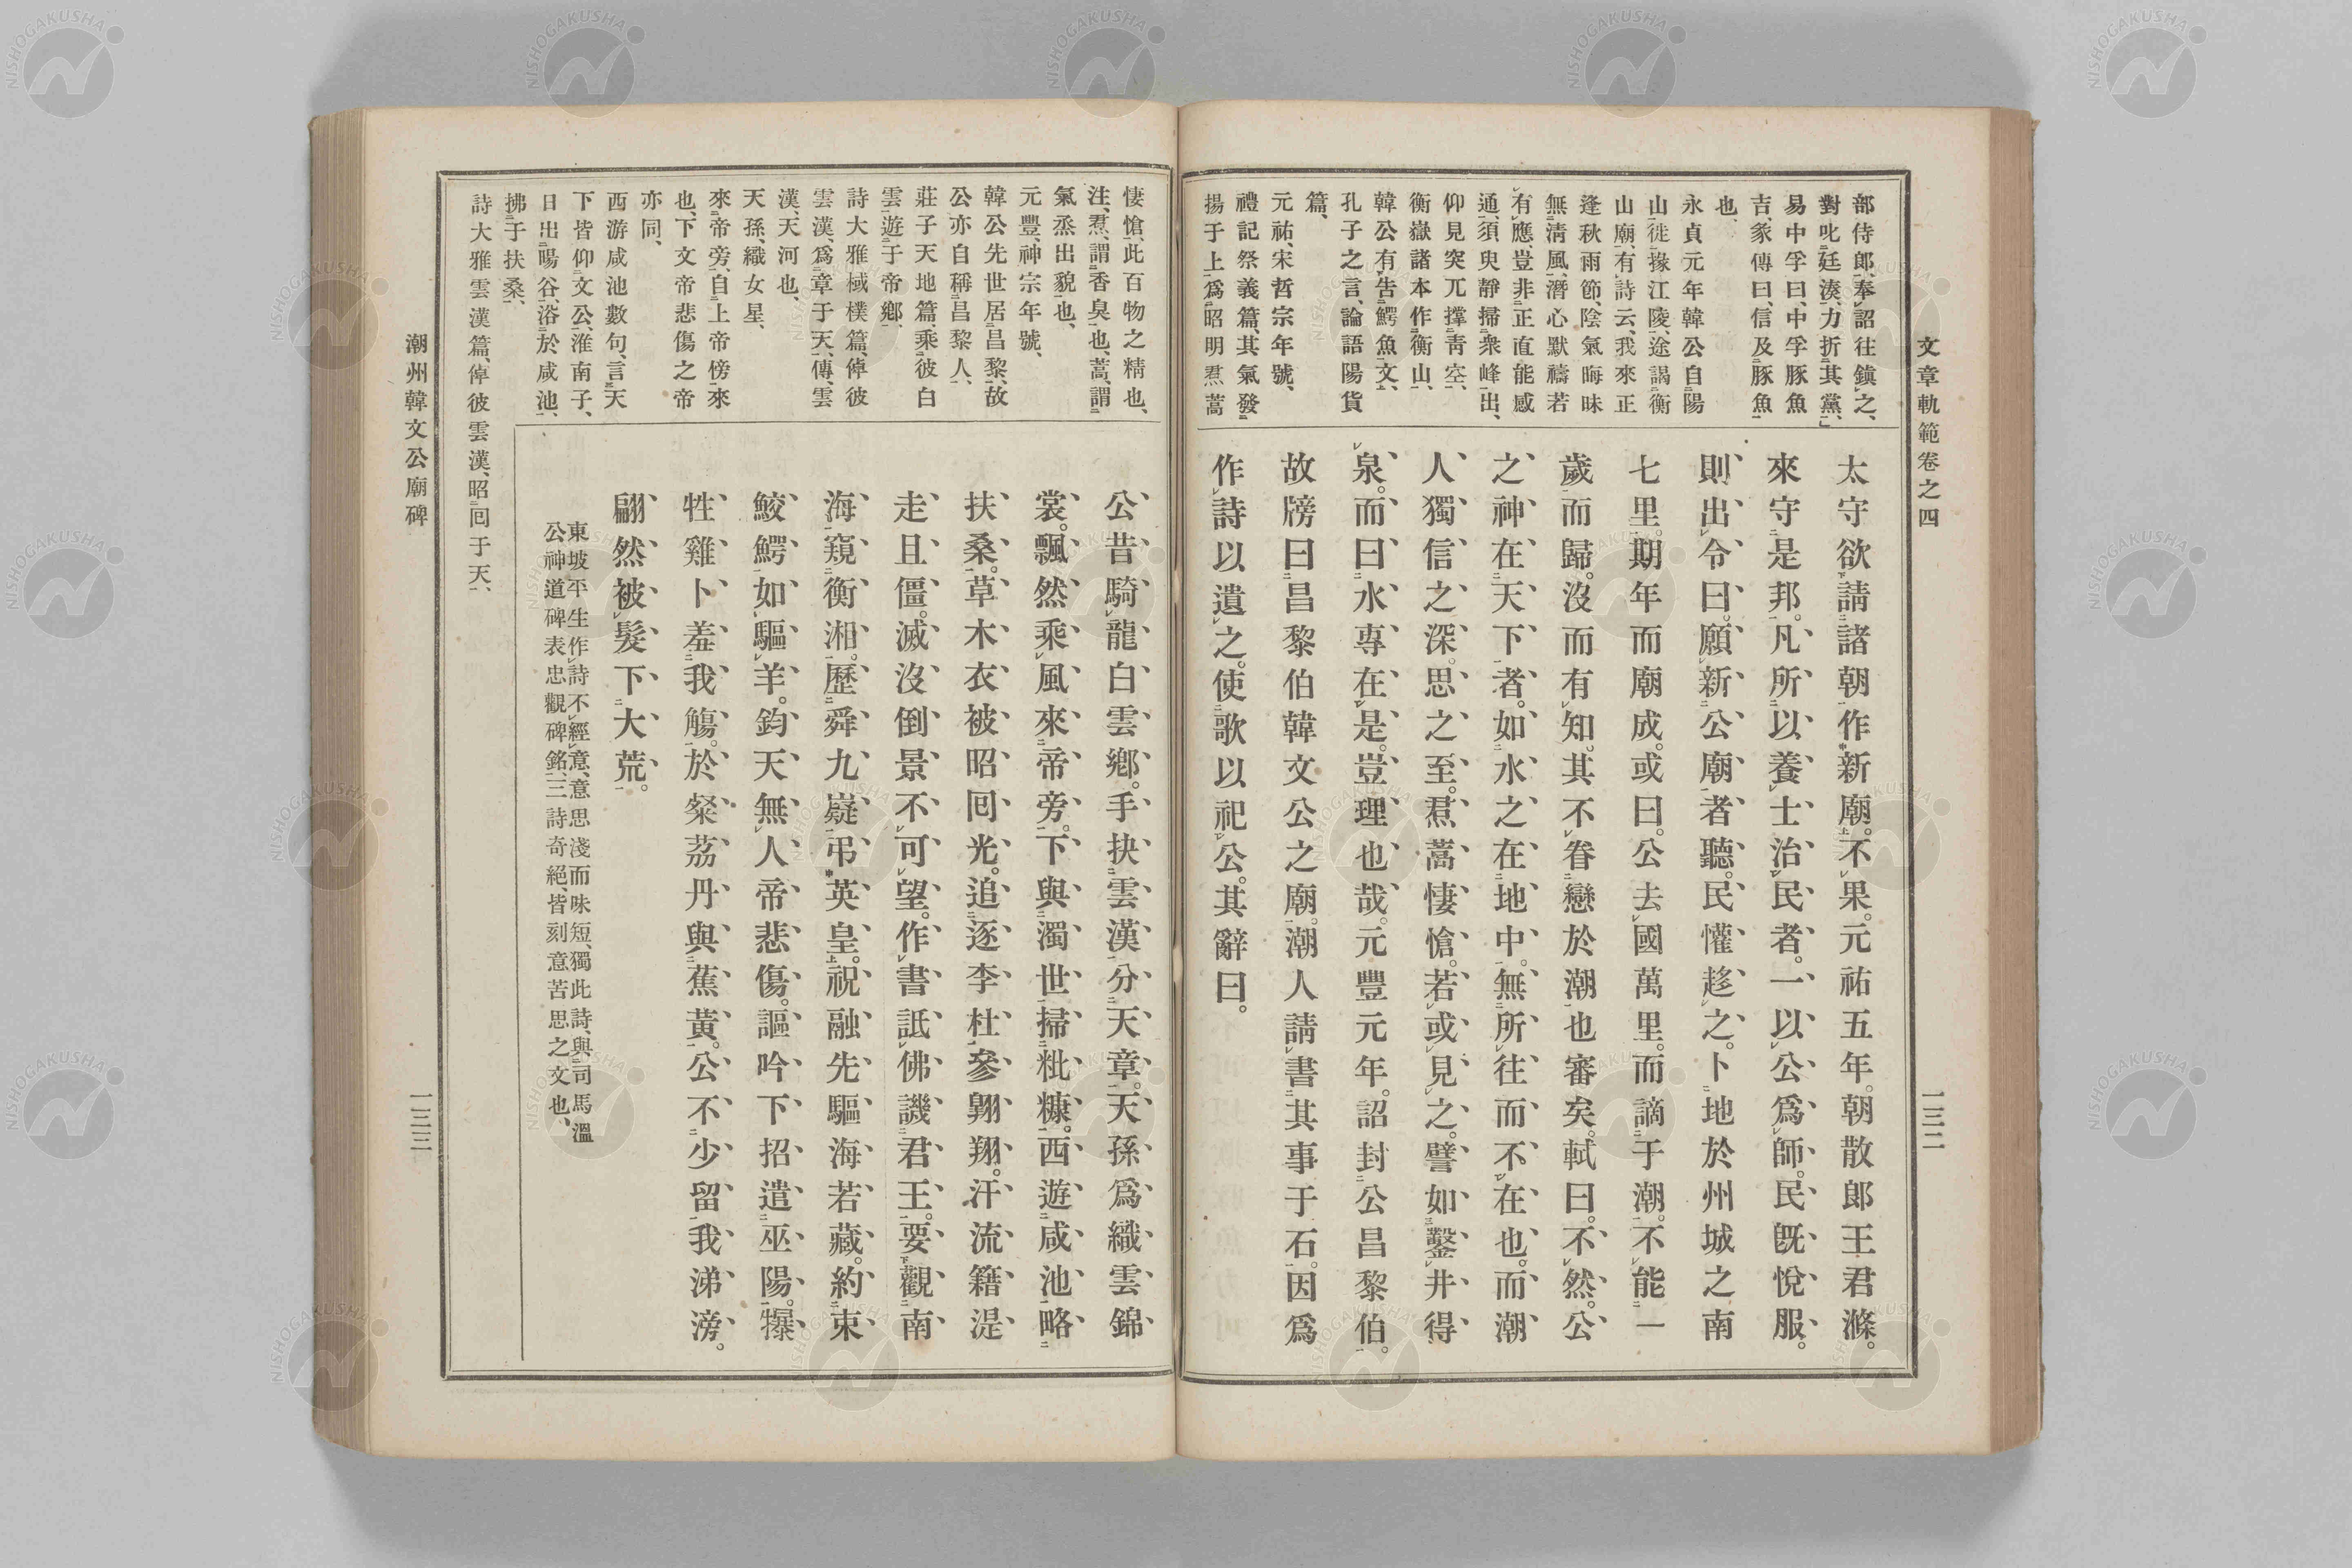 文章軌範卷之四
一三二
部侍郎、奉詔往鎭之、
對叱廷湊、力折其黨、」
易中孚曰、中孚豚魚
吉、彖傳曰、信及豚魚
也、
永貞元年韓公自陽
山徙掾江陵、途謁衡
山廟、有詩云、我來正
逢秋雨節、陰氣晦昧
無淸風、潛心默禱若
有應、豈非正直能感
通、須臾靜掃衆峰出、
仰見突兀撐靑空、
衡嶽諸本作衡山、
韓公有吿鰐魚文、
孔子之言、論語陽貨
篇、
元祐、宋哲宗年號、
禮記祭義篇、其氣發
揚于上、爲昭明焄蒿
太守欲請諸朝作新廟。不果。元祐五年。朝散郎王君滌。
來守是邦。凡所以養士治民者。一以公爲師。民旣悅服。
則出令曰。願新公廟者聽。民懽趍之。卜地於州城之南
七里。期年而廟成。或曰。公去國萬里。而謫于潮。不能一
歲而歸。沒而有知。其不眷戀於潮也審矣。軾曰。不然。公
之神在天下者。如水之在地中。無所往而不在也。而潮
人獨信之深。思之至。焄蒿悽愴。若或見之。譬如鑿井得
泉。而曰水專在是。豈理也哉。元豐元年。詔封公昌黎伯。
故牓曰昌黎伯韓文公之廟。潮人請書其事于石。因爲
作詩以遺之。使歌以祀公。其辭曰。
悽愴、此百物之精也、
注、焄、謂香臭也、蒿、謂
氣烝出貌也、
元豐、神宗年號、
韓公先世居昌黎、故
公亦自稱昌黎人、
莊子天地篇、乘彼白
雲、遊于帝鄉、
詩大雅棫樸篇、倬彼
雲漢、爲章于天、傳、雲
漢、天河也、
天孫、織女星、
來帝旁、自上帝傍來
也、下文帝悲傷之帝
亦同、
西游咸池數句、言天
下皆仰文公、淮南子、
日出暘谷、浴於咸池、
拂于扶桑、
詩大雅雲漢篇、倬彼雲漢、昭囘于天、
公昔騎龍白雲鄉。手抉雲漢分天章。天孫爲織雲錦
裳。飄然乘風來帝旁。下與濁世掃粃糠。西遊咸池略
扶桑。草木衣被昭囘光。追逐李杜參翺翔。汗流籍湜
走且僵。滅沒倒景不可望。作書詆佛譏君王。要觀南
海窺衡湘。歷舜九嶷弔英皇。祝融先驅海若藏。約束
鮫鰐如驅羊。鈞天無人帝悲傷。謳吟下招遣巫陽。犦
牲雞卜羞我觴。於粲荔丹與蕉黃。公不少留我涕滂。
翩然被髮下大荒。
東坡平生作詩不經意、意思淺而味短、獨此詩、與司馬溫
公神道碑表忠觀碑銘、三詩奇絕、皆刻意苦思之文也、
潮州韓文公廟碑
一三三